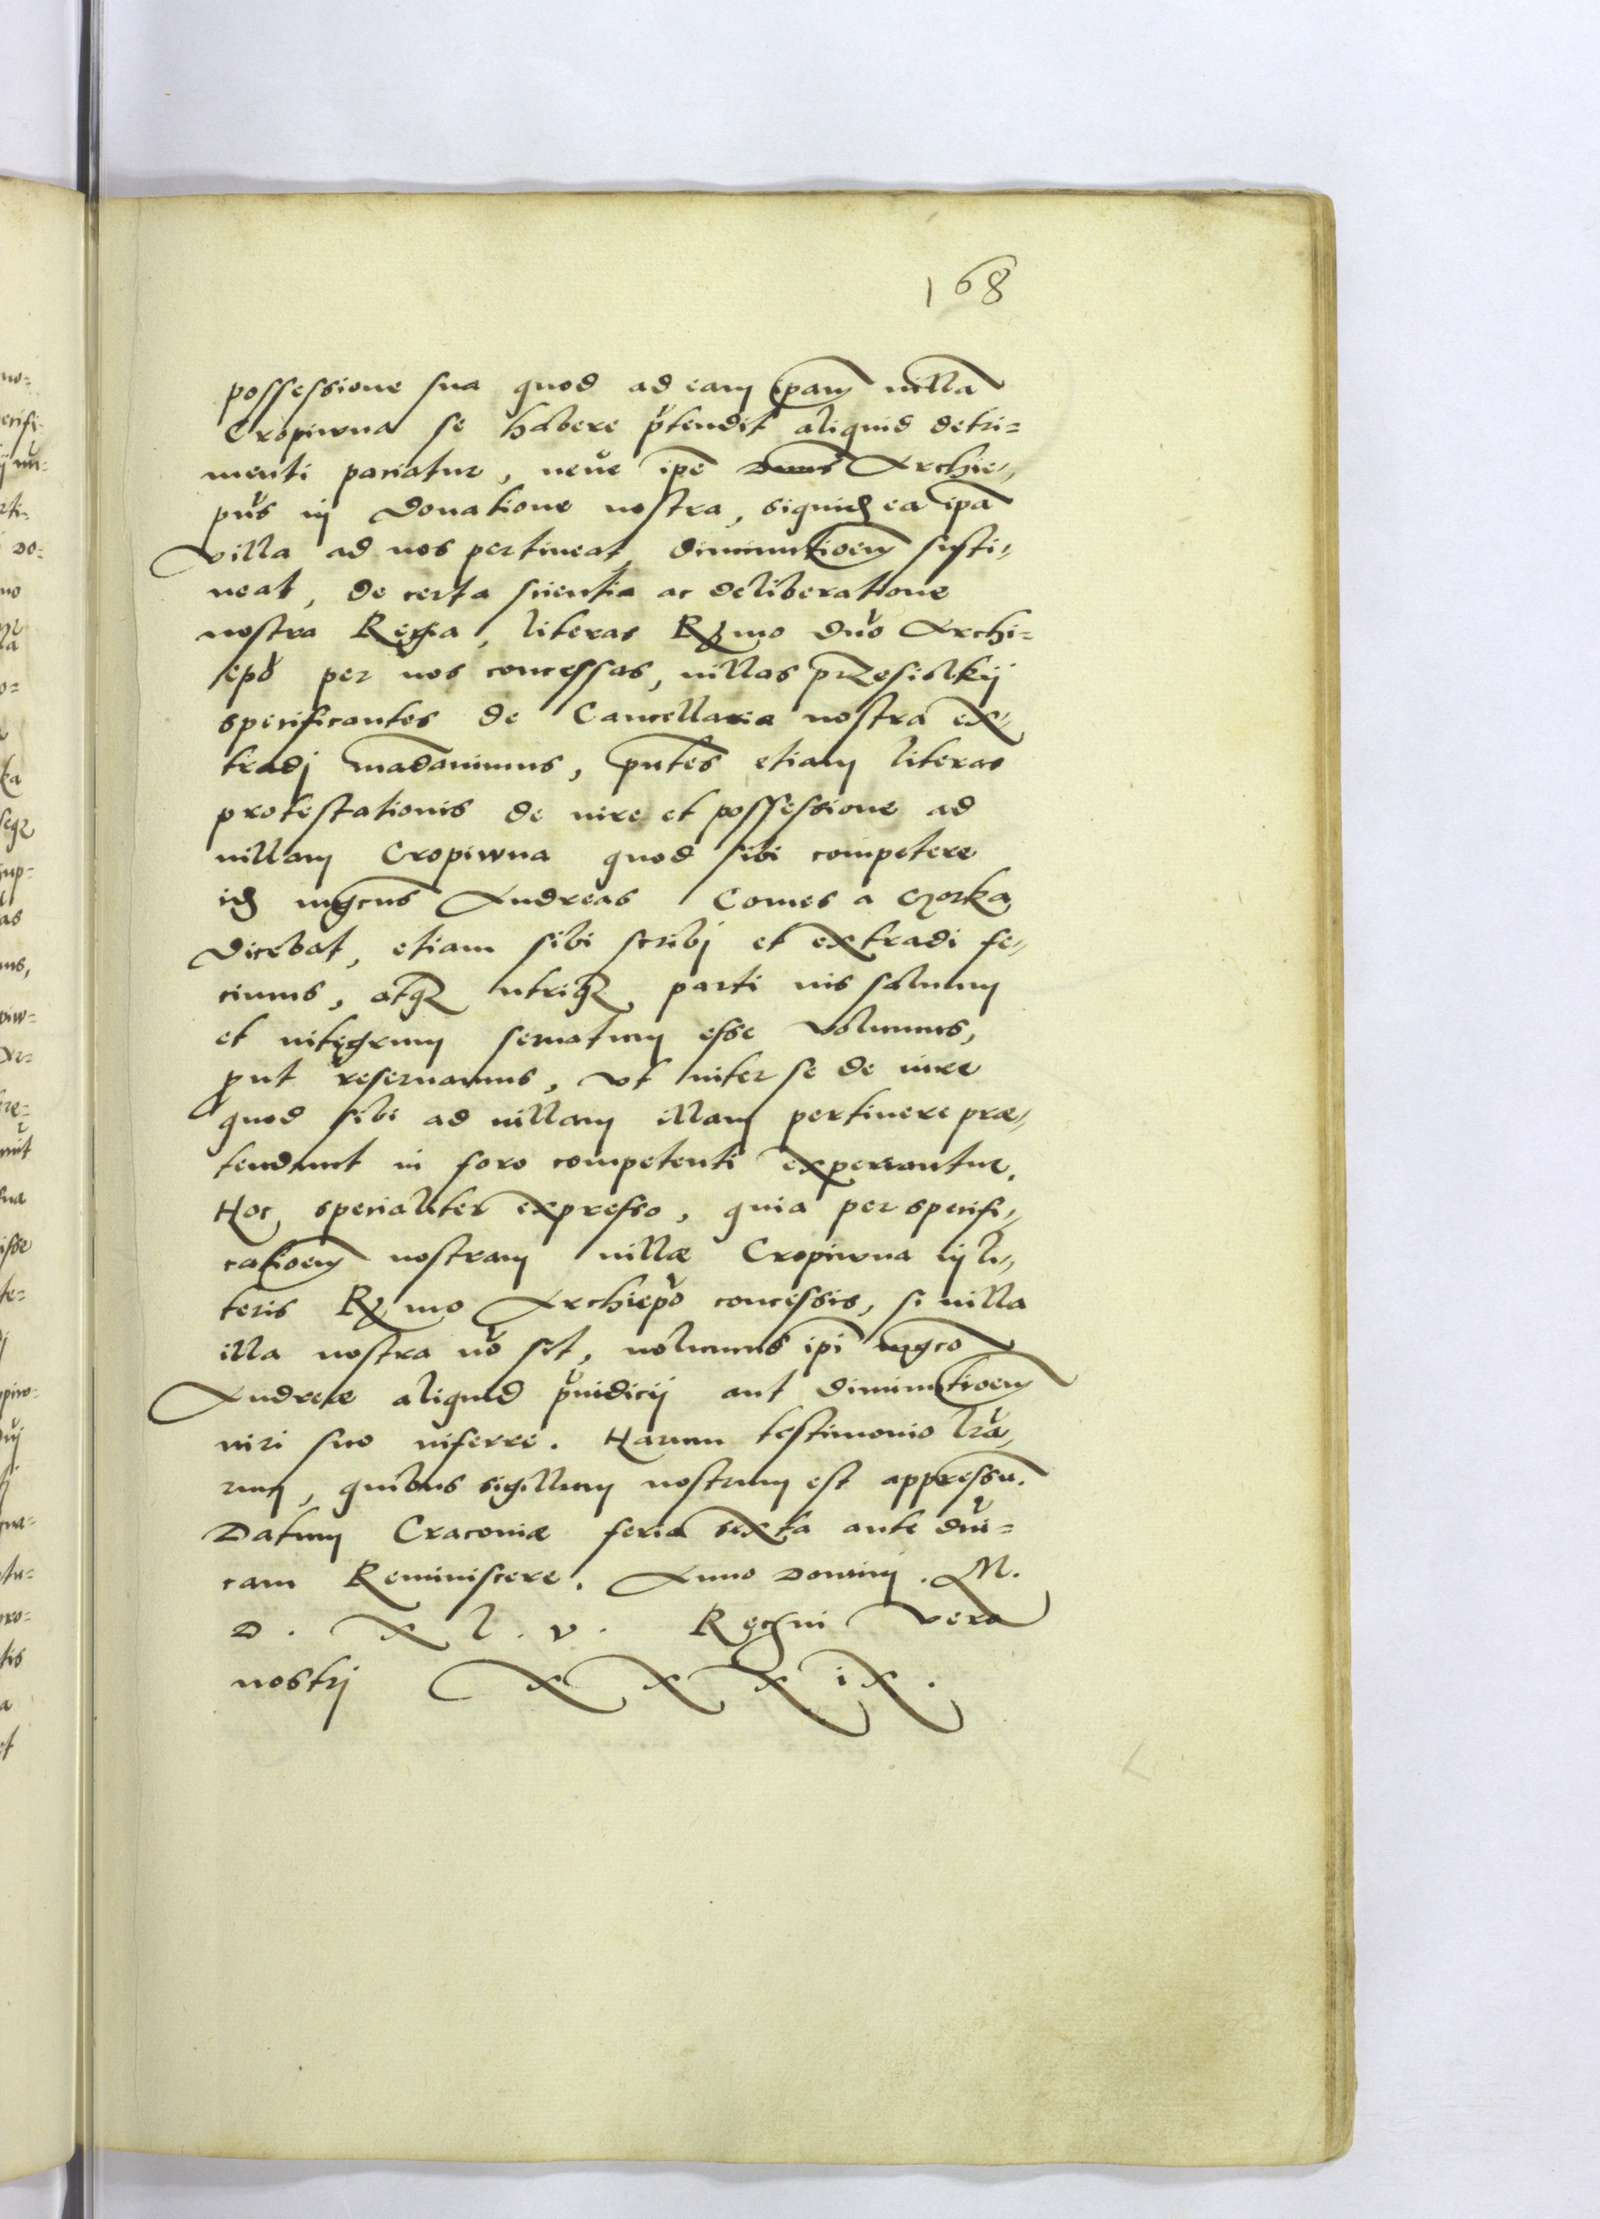 168
possessione sua quod ad eam ipam villa
Cropiwna se habere ptendit aliquid detri=
menti paciatur, neve ipe Dnus Archie=
pus in Donatione nostra, siquid ea ipa
villa ad nos pertineat, diminutioem susti=
neat, de certa scientia ac deliberatione
nostra Regia, literas Rmo duo Archi=
epo per nos concessas, villas przesiblkij
specificantes de Cancellaria nostra ex=
tradj madavimus, pntes etiam literas
protestationis de iure et possessione ad
villam Cropiwna quod sibi competere
id mgcus Andreas Comes a Gorka
dicebat, etiam sibi scribj et extradi fe=
cimus, atq utriq parti ius saluum
et integrum seruatum esse volumus,
put reseruamus, vt inter se de iure
quod sibi ad villam illam pertinere præ=
tendunt in foro competenti experiantur.
Hoc specialiter expresso, quia per specifi=
catioem nostram villæ Cropiwna in li=
teris Rmo Archiepo concessis, si villa
illa nostra no sit, nolumus ipi mgco
Andreæ aliquid piudicij aut diminutioem
iuri suo inferre. Harum testimonio lra=
rum, quibus sigillum nostrum est appressu.
Datum Cracoviæ feria sexta ante dni=
cam Reminiscere. Anno Dominj . M.
D . X l . v . Regni vero
nostrj X X X i X .